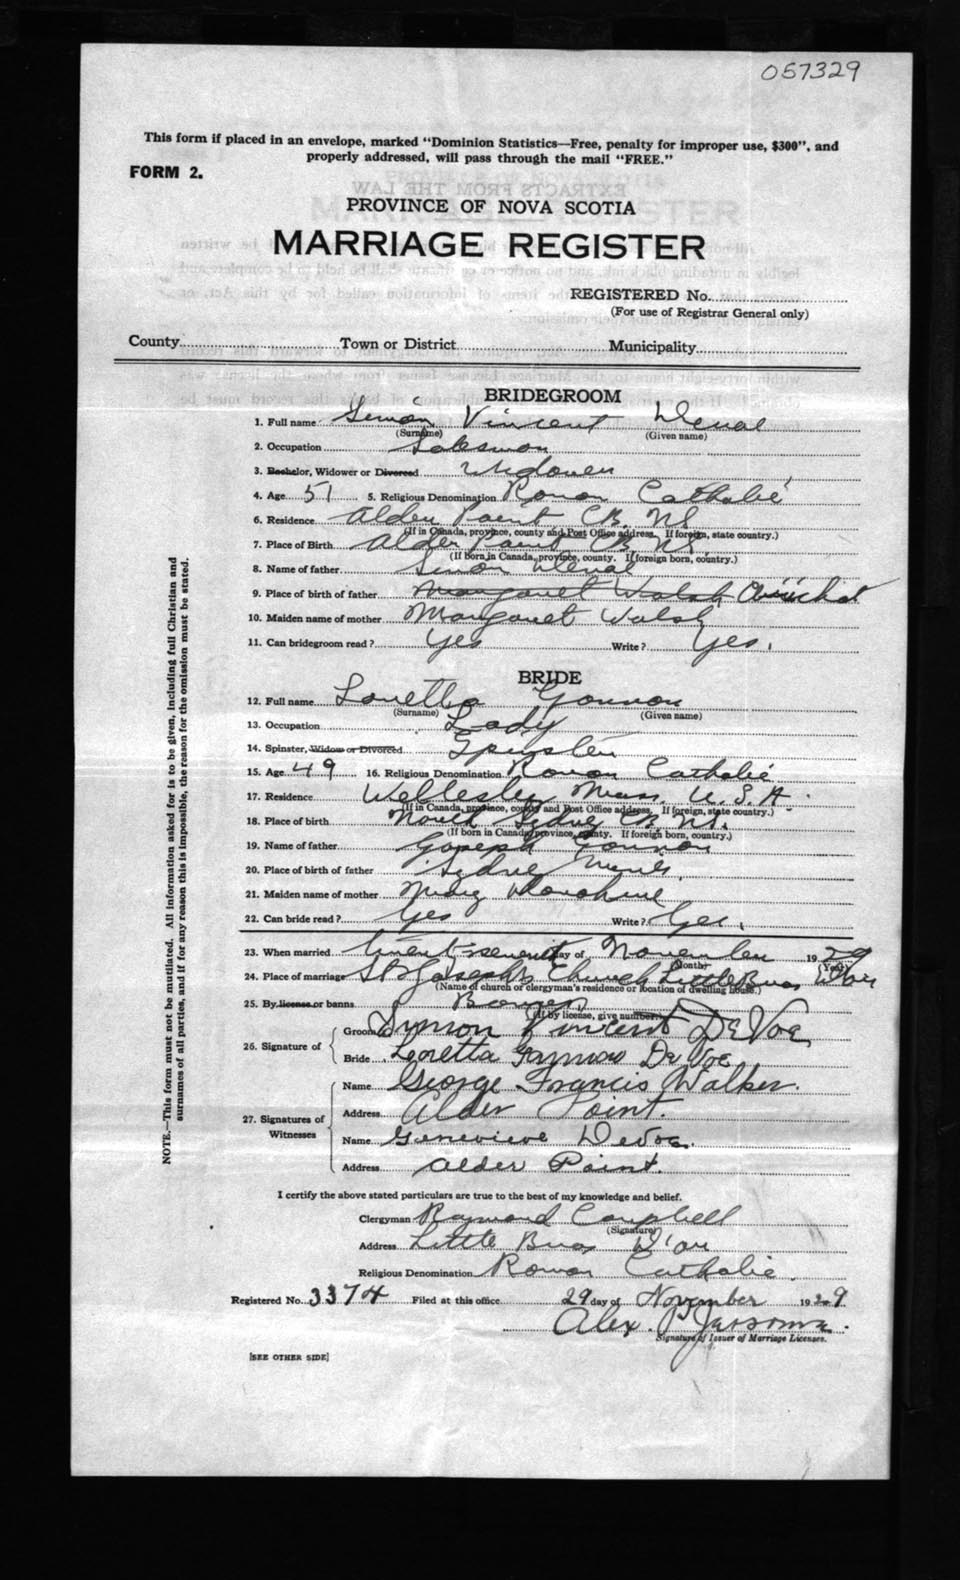 057329
This form if placed in an envelope, marked "Dominion Statistics—Free, penalty for improper use, $300", and
properly addressed, will pass through the mail "FREE."
FORM 2.
PROVINCE OF NOVA SCOTIA
MARRIAGE REGISTER
REGISTERED No.
(For use of Registrar General only)
County Town or District Municipality
BRIDEGROOM
1. Full name Simon Vincent
(Surname) (Given name)
2. Occupation Salesman
3. Bachelor, Widower or Divorced Widower
4. Age 51 5. Religious Denomination Roman Catholic
6. Residence Alder Point CB. NS
(If in Canada, province, county and Post Office address. If foreign, state country.)
7. Place of Birth Alder Point CB. NS.
(If born in Canada, province, county. If foreign born, country.)
8. Name of father Simon
9. Place of birth of father Margaret Walsh Arichat
10. Maiden name of mother Margaret Walsh
11. Can bridegroom read? Yes Write? Yes.
BRIDE
12. Full name Loretta
(Surname) (Given name)
13. Occupation Lady
14. Spinster, Widow or Divorced Spinster
15. Age 49 16. Religious Denomination Roman Catholic
17. Residence Wellesley Mass. U.S.A.
(If in Canada, province, county and Post Office address. If foreign, state country.)
18. Place of birth North Sydney CB NS.
(If born in Canada, province, county. If foreign born, country.)
19. Name of father Joseph
20. Place of birth of father Sydney Mines.
21. Maiden name of mother Mary
22. Can bride read? Yes Write? Yes.
23. When married day of November 1929
(Month) (Year)
24. Place of marriage St Joseph's Church Little Bras D'or
(Name of church or clergyman's residence or location of dwelling house.)
25. By license or banns Banns
(If by license, give number.)
26. Signature of Groom Simon Vincent DeVoe
Bride Loretta Gannon DeVoe
27. Signatures of Witnesses
Name George Francis Walker.
Address Alder Point.
Name Genevieve DeVoe.
Address Alder Point.
I certify the above stated particulars are true to the best of my knowledge and belief.
Clergyman Raymond Campbell
(Signature)
Address Little Bras D'or
Religious Denomination Roman Catholic.
Registered No. 3374 Filed at this office 29 day of November 1929
Alex. P.
Signature of Issuer of Marriage Licenses.
[SEE OTHER SIDE]
NOTE.—This form must not be mutilated. All information asked for is to be given, including full Christian and
surnames of all parties, and if for any reason this is impossible, the reason for the omission must be stated.